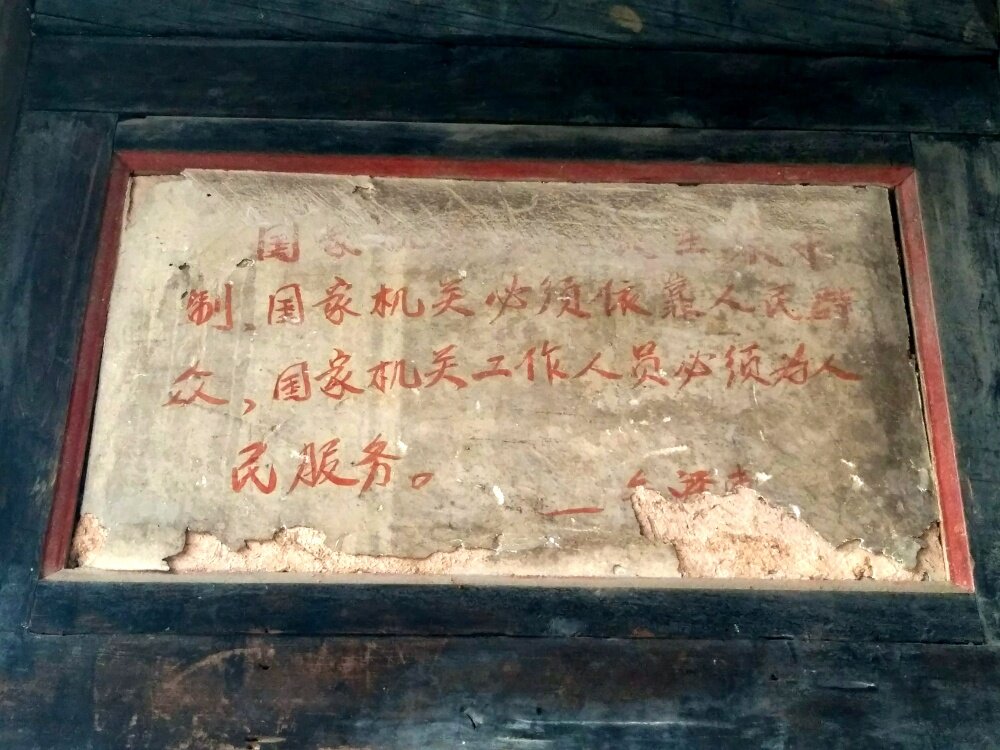 国家
制、国家机关必须依靠人民群
众，国家机关工作人员必须为人
民服务。
——毛泽东